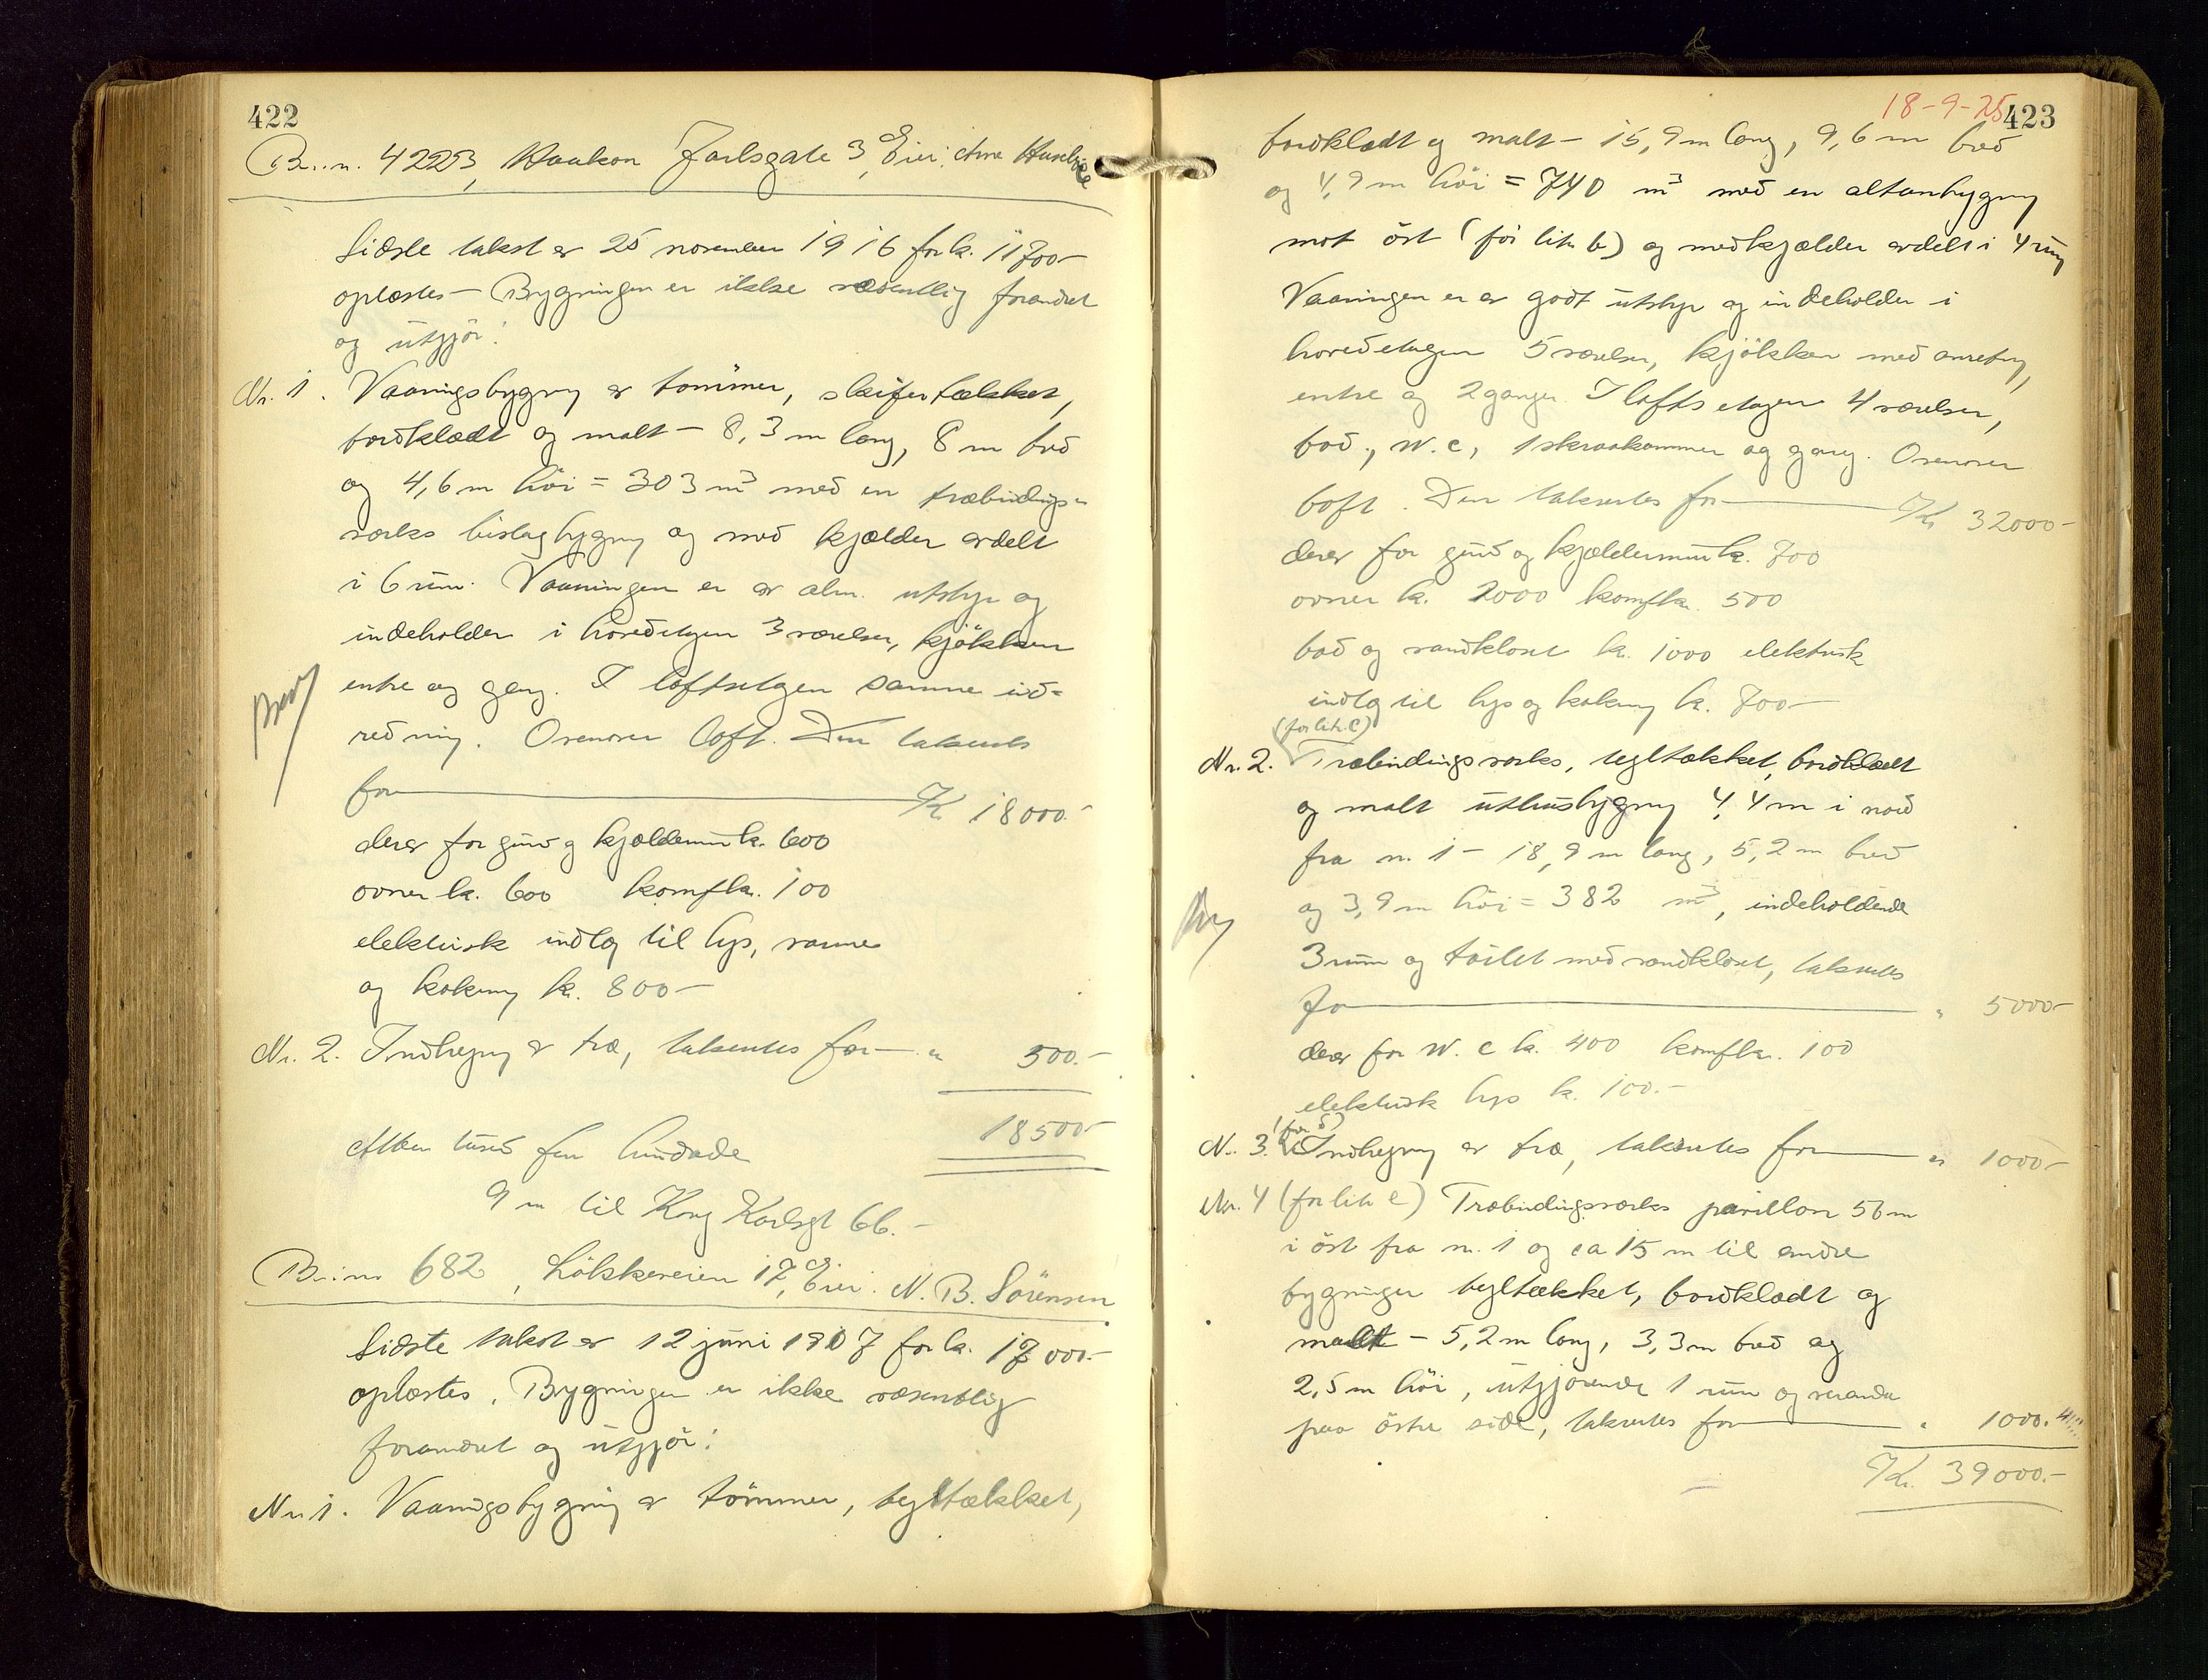 422
Br.nr. 42223, Haakon Jarlsgate 3, Eier: Arne Husebøe
Sidste takst er 25 november 1916 for kr. 11700-
oplæstes - Bygningen er ikke væsentlig forandret
og utgjør:
Nr. 1. Vaaningsbygng av tømmer, skifertækket,
bordklædt og malt - 8,3 m lang, 8 m bred
og 4,6 m høi = 303 m³ med en træbindings-
verks bislagbygng og med kjælder avdelt
i 6 rum. Vaaningen er av alm. utstyr og
indeholder i hovedetagen 3 værelser, kjøkken
entre og gang. I loftsetagen samme ind-
redning. Ovenover loft. Den takseres
for Kr. 18000.-
derav for grund og kjældermur kr. 600
ovner kr. 600 komf kr. 100
elektrisk indlæg til lys, varme
og kokning kr. 800-
Nr. 2. Indhegng av træ, takseres for " 500.-
18500-
Atten tusend fem hundrede
9 m til Kong Karlsgt 66.-
Br.nr 682, Løkkeveien 17, Eier: N. B. Sørensen
Sidste takst er 12 juni 1907 for kr. 17000.-
oplæstes. Bygningen er ikke væsentlig
forandret og utgjør:
Nr 1. Vaaningsbygning av tømmer, tegltækket,
18-9-25
423
bordklædt og malt - 15,9 m lang, 9,6 m bred
og 4,9 m høi = 740 m³ med en altanbygng
mot øst (før litr b) og med kjælder avdelt i 4 rum
Vaaningen er av godt utstyr og indeholder i
hovedetagen 5 værelser, kjøkken med anretng,
entre og 2 ganger. I loftsetagen 4 værelser,
bad, w.c, 1 skraakammer og gang. Ovenover
loft. Den takseres for Kr. 32000-
derav for grund og kjældermur kr. 700
ovner kr. 2000 komf kr. 500
bad og vandkloset kr. 1000 elektrisk
indlg til lys og kokning kr. 700-
(før litr. c)
Nr. 2. Træbindingsverks, tegltækket, bordklædt
og malt uthusbygng 4,4 m i nord
fra nr. 1 - 18,9 m lang, 5,2 m bred
og 3,9 m høi = 382 m³, indeholdende
3 rum og toilet med vandkloset, takseres
for " 5000-
derav for w.c kr. 400 komf kr. 100
elektrisk lys kr. 100.-
(før d)
Nr. 3. Indhegng av træ, takseres for " 1000-
Nr. 4 (før litr e) Træbindingsverks pavillon 56 m
i øst fra nr. 1 og ca 15 m til andre
bygninger tegltækket, bordklædt og
malt - 5,2 m lang, 3,3 m bred og
2,5 m høi, utgjørende 1 rum og veranda
paa østre side, takseres for " 1000.-
Kr. 39000.-